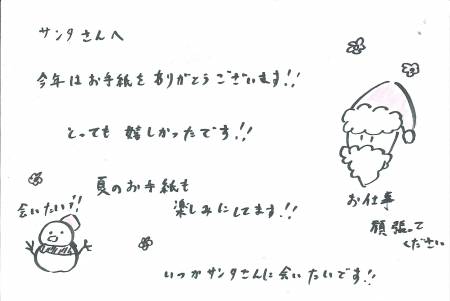 サンタさんへ
今年はお手紙をありがとうございます!!
とっても嬉しかったです!!
夏のお手紙も
楽しみにしてます!!
会いたい!!
お仕事
頑張って
ください
いつかサンタさんに会いたいです!!